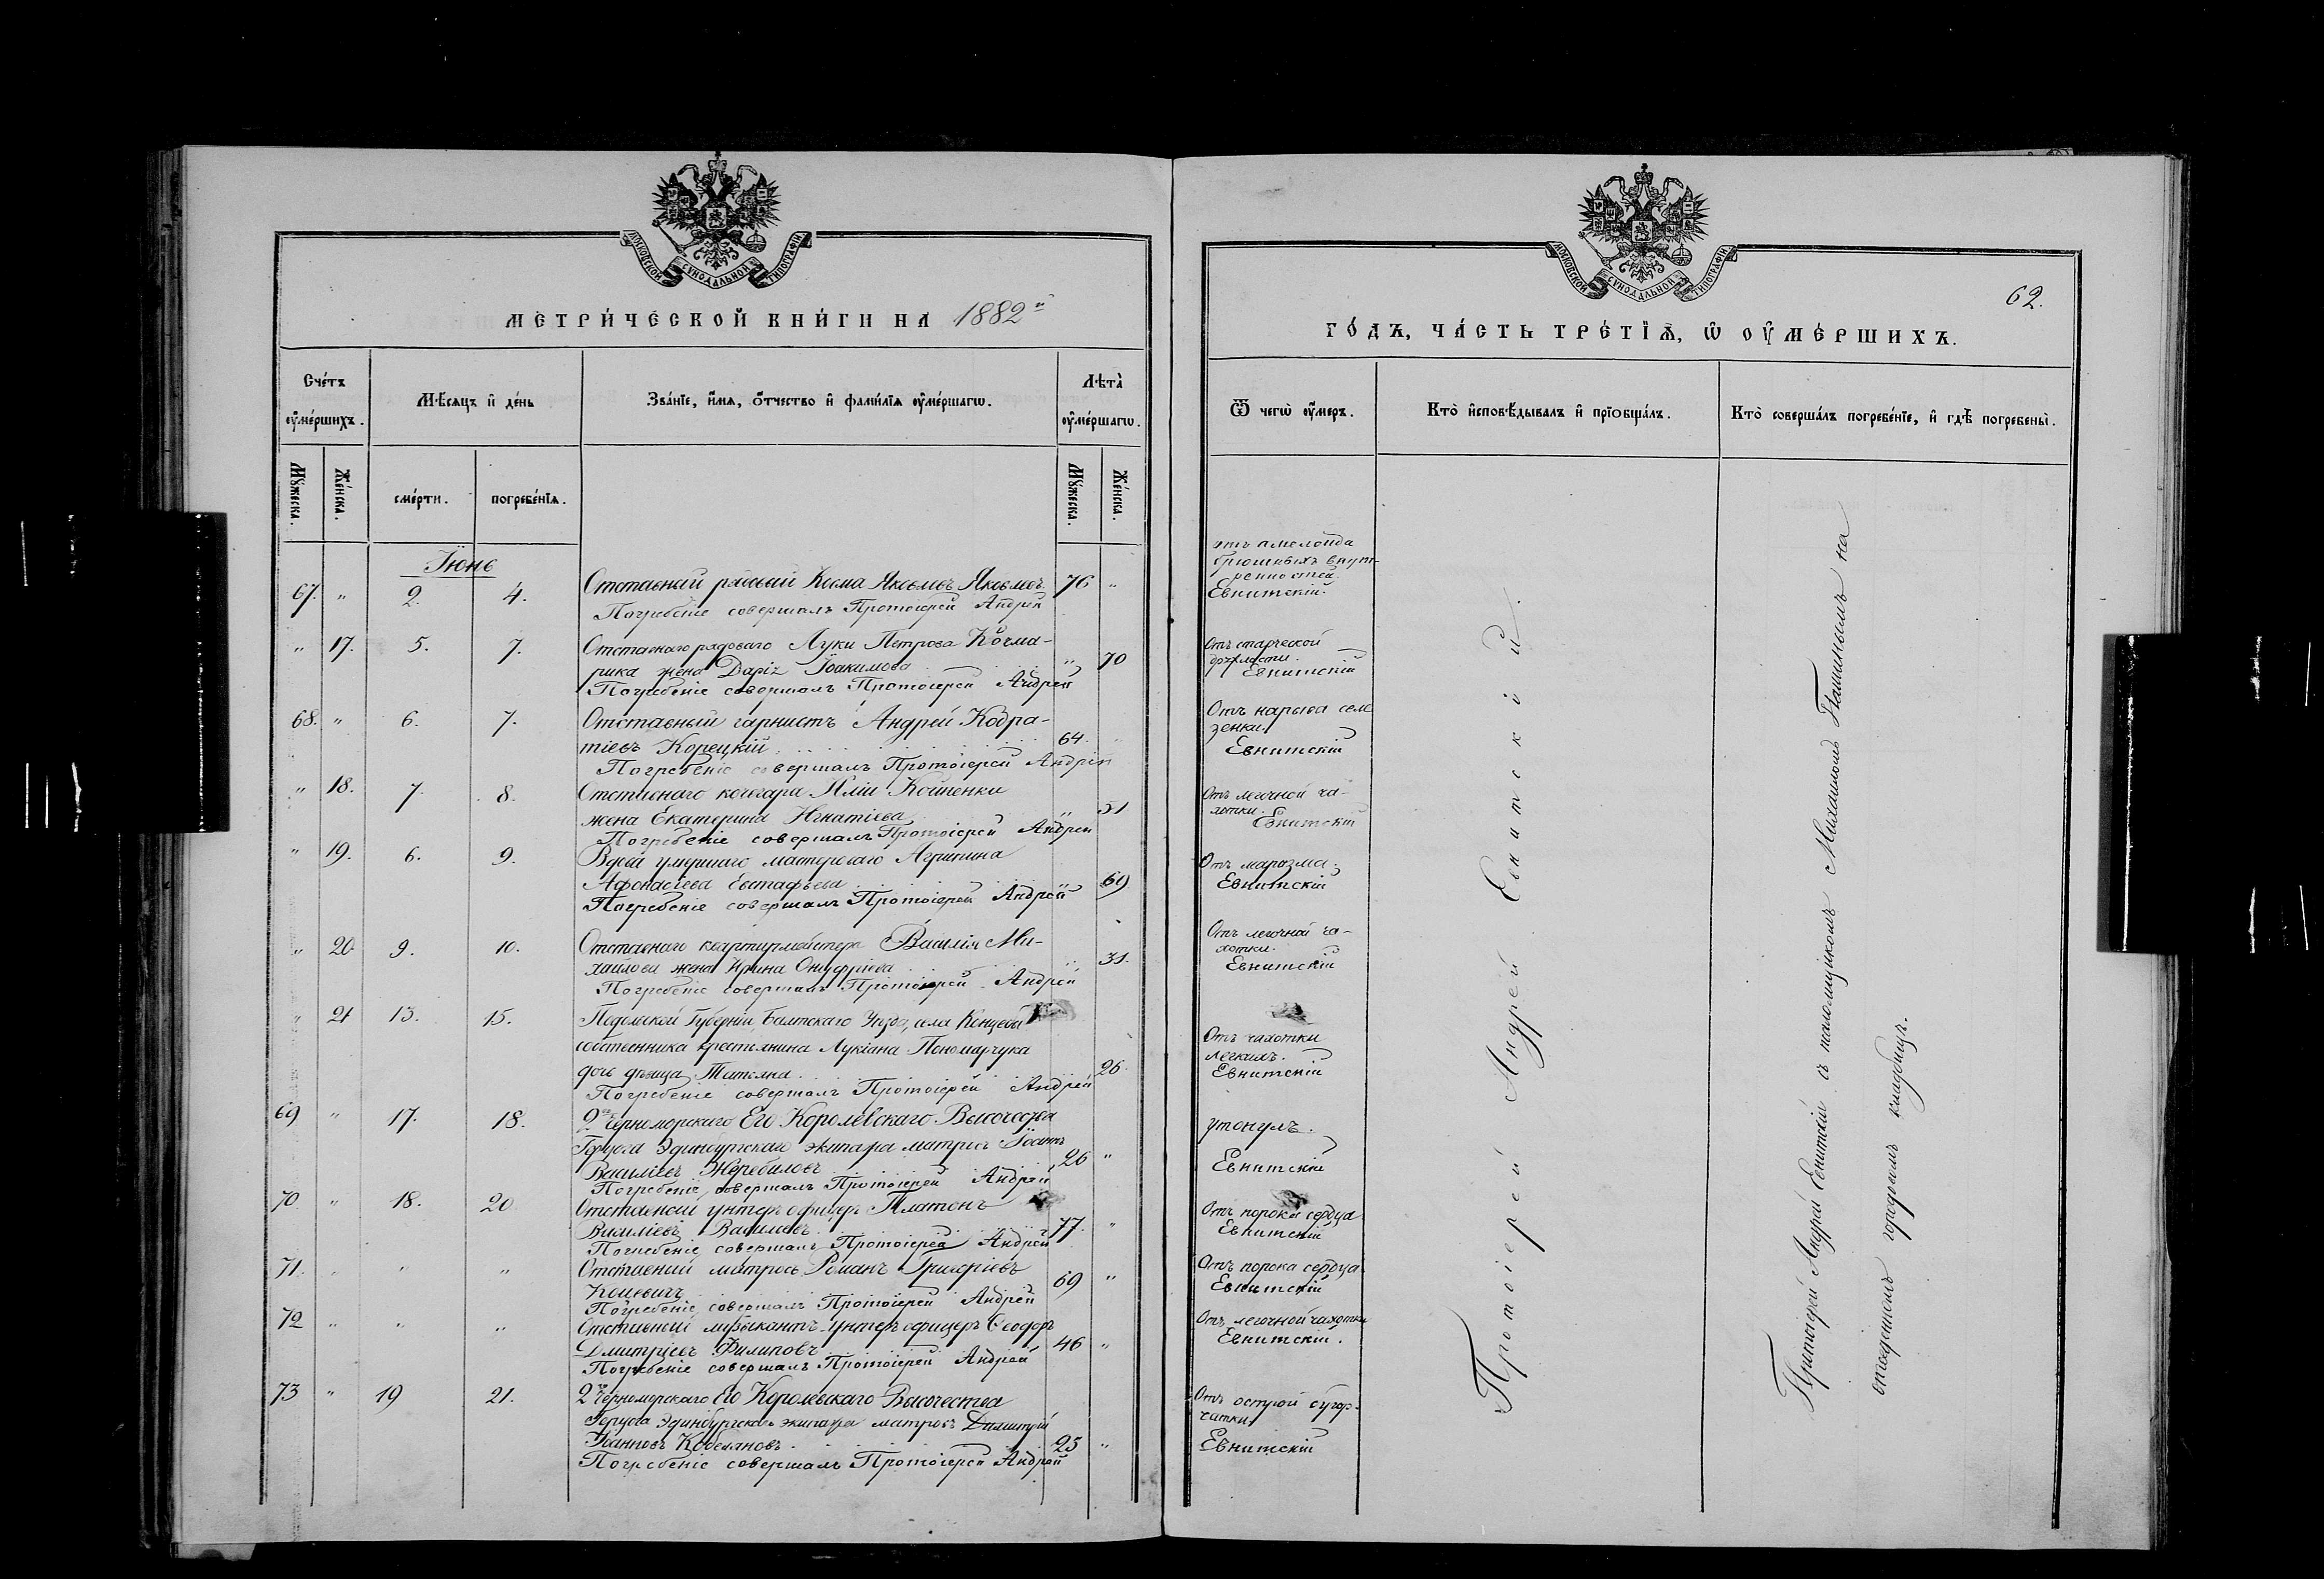 МОСКОВСКОЙ СѴНОДАЛЬНОЙ ТИПОГРАФІИ
МЕТРИЧЕСКОЙ КНИГИ НА 1882й
Счетъ
оумершихъ.
Мѣсяцъ и день
Званїе, имя, отчество и фамилїя оумершагѡ.
Лѣта
оумершагѡ.
Мужеска.
Женска.
смерти.
погребенїя.
Мужеска.
Женска.
Іюнь
67. " 2. 4. Отставный рядовый Косма Яковлевъ Яковлевъ 76 "
Погребеніе совершалъ Протоіерей Андрей
" 17. 5. 7. Отставнаго рядоваго Луки Петрова Кочма-
рика жена Дарія Іоакимова " 70
Погребеніе совершалъ Протоіерей Андрей
68. " 6. 7. Отставный горнистъ Андрей Кодра-
тіевъ Корецкій 64. "
Погребеніе совершалъ Протоіерей Андрей
" 18. 7. 8. Отставнаго кочегара Иліи
жена Екатерина Игнатіева " 51
Погребеніе совершалъ Протоіерей Андрей
" 19. 6. 9. Вдова умершаго матероваго Агрипина
Афонасіева Евстафьева " 69
Погребеніе совершалъ Протоіерей Андрей
" 20 9. 10. Отставнаго квартирмейстера Василія Ми-
хаилова жена Ирина Онуфріева " 31.
Погребеніе совершалъ Протоіерей Андрей
" 21 13. 15. Подольской Губерніи, Балтскаго Уѣзда, села Концеба
собственника крестьянина Лукіана Пономарчука
дочь дѣвица Татьяна 26.
Погребеніе совершалъ Протоіерей Андрей
69 " 17. 18. 2го Черноморскаго Его Королевскаго Высочества
Герцога Эдинбургскаго экипажа матросъ Іоаннъ
Василіевъ Жеребиловъ 26 "
Погребеніе совершалъ Протоіерей Андрей
70 " 18. 20 Отставной унтеръ офицеръ Платонъ
Василіевъ Василевъ 77. "
Погребеніе совершалъ Протоіерей Андрей
71. " " " Отставный матросъ Романъ Григоріевъ
Коцевичъ 69 "
Погребеніе совершалъ Протоіерей Андрей
72 " " " Отставной музыкантъ-унтеръ офицеръ Ѳеодоръ
Дмитріевъ Филиповъ 46 "
Погребеніе совершалъ Протоіерей Андрей
73 " 19 21. 2го Черноморскаго Его Королевскаго Высочества
Герцога Эдинбургскаго экипажа матросъ Димитрій
Іоанновъ Кобеляновъ 25 "
Погребеніе совершалъ Протоіерей Андрей
МОСКОВСКОЙ СѴНОДАЛЬНОЙ ТИПОГРАФІИ
62.
ГОДЪ, ЧАСТЬ ТРЕТІЯ, Ѡ ОУМЕРШИХЪ.
Ѿ чегѡ оумеръ.
Кто исповѣдывалъ и прїобщалъ.
Кто совершалъ погребенїе, и гдѣ погребены.
отъ амелоида
брюшныхъ внут-
ренностей.
Евнитскій.
Отъ старческой
дряхлости.
Евнитскій
Отъ нарыва селе
зенки.
Евнитскій
Отъ легочной ча-
хотки.
Евнитскій
Отъ маразма.
Евнитскій
Отъ легочной ча-
хотки.
Евнитскій
Отъ чахотки
легкихъ.
Евнитскій
утонулъ.
Евнитскій
Отъ порока сердца
Евнитскій
Отъ порока сердца
Евнитскій
Отъ легочной чахотки
Евнитскій.
Отъ острой бугор-
чатки
Евнитскій
Протоіерей Андрей Евнитскій.
Протоіерей Андрей Евнитскій съ псаломщикомъ Михаиломъ Пашинымъ на
отведенномъ городомъ кладбищѣ.